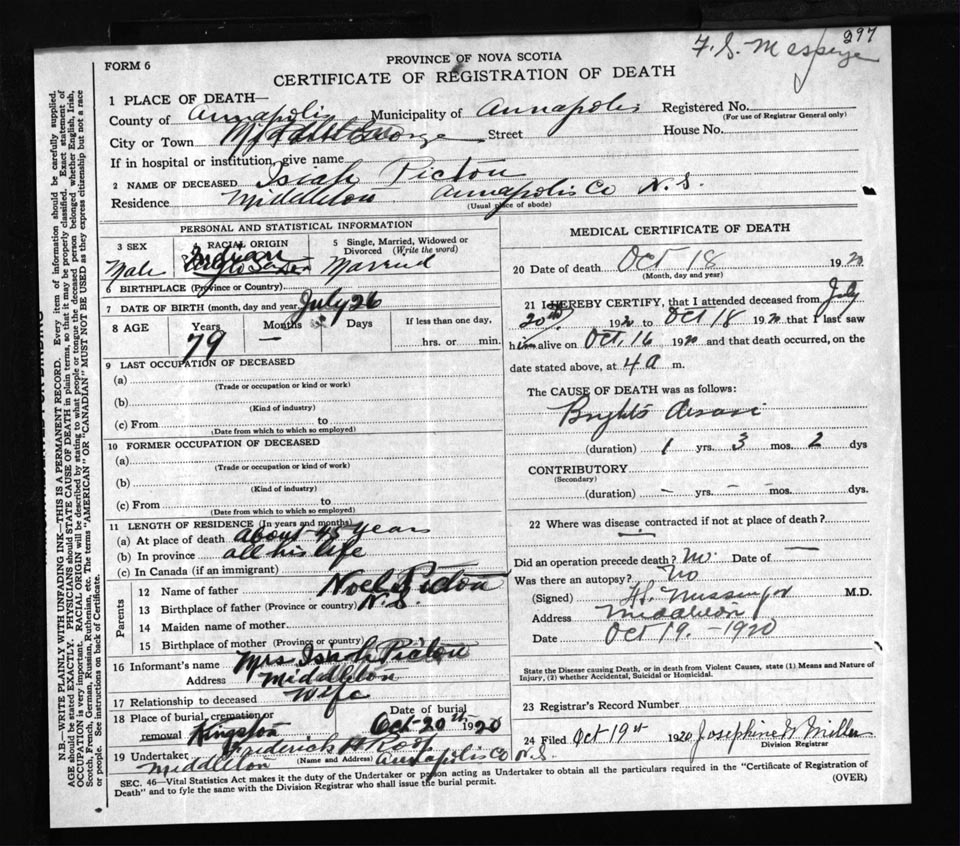 297
F. S. Messenger
FORM 6
PROVINCE OF NOVA SCOTIA
CERTIFICATE OF REGISTRATION OF DEATH
1 PLACE OF DEATH—
County of Annapolis Municipality of Annapolis Registered No.
(For use of Registrar General only)
City or Town Street House No.
If in hospital or institution, give name
2 NAME OF DECEASED Isiah Picton
Residence Middleton Annapolis Co N.S.
(Usual place of abode)
PERSONAL AND STATISTICAL INFORMATION
3 SEX 4 RACIAL ORIGIN 5 Single, Married, Widowed or Divorced (Write the word)
Male Indian Anglo Saxon Married
6 BIRTHPLACE (Province or Country)
7 DATE OF BIRTH (month, day and year) July 26
8 AGE Years Months Days If less than one day,
79 — hrs. or min.
9 LAST OCCUPATION OF DECEASED
(a)
(Trade or occupation or kind or work)
(b)
(Kind of industry)
(c) From to
(Date from which to which so employed)
10 FORMER OCCUPATION OF DECEASED
(a)
(Trade or occupation or kind or work)
(b)
(Kind of industry)
(c) From to
(Date from which to which so employed)
11 LENGTH OF RESIDENCE (In years and months)
(a) At place of death about 45 years
(b) In province all his life
(c) In Canada (if an immigrant)
Parents
12 Name of father Noel Picton
13 Birthplace of father (Province or country) N.S.
14 Maiden name of mother
15 Birthplace of mother (Province or country)
16 Informant's name Mrs Isiah Picton
Address Middleton
17 Relationship to deceased Wife
18 Place of burial, cremation or removal Kingston Date of burial Oct 20th 1920
19 Undertaker Frederick H Roop
(Name and Address)
Middleton Annapolis Co N.S.
MEDICAL CERTIFICATE OF DEATH
20 Date of death Oct 18 1920
(Month, day and year)
21 I HEREBY CERTIFY, that I attended deceased from July
20th, 1920 to Oct 18 1920 that I last saw
him alive on Oct. 16 1920 and that death occurred, on the
date stated above, at 4 a m.
The CAUSE OF DEATH was as follows:
Brights Disease
(duration) 1 yrs. 3 mos. 2 dys
CONTRIBUTORY
(Secondary)
(duration) — yrs. — mos. dys.
22 Where was disease contracted if not at place of death?
Did an operation precede death? No Date of —
Was there an autopsy? No
(Signed) Messenger M.D.
Address Middleton
Date Oct 19. - 1920
State the Disease causing Death, or in death from Violent Causes, state (1) Means and Nature of
Injury, (2) whether Accidental, Suicidal or Homicidal.
23 Registrar's Record Number
24 Filed Oct 19st 1920 Josephine W Miller
Division Registrar
SEC. 46—Vital Statistics Act makes it the duty of the Undertaker or person acting as Undertaker to obtain all the particulars required in the "Certificate of Registration of
Death" and to fyle the same with the Division Registrar who shall issue the burial permit.
(OVER)
N.B.—WRITE PLAINLY WITH UNFADING INK—THIS IS A PERMANENT RECORD. Every item of information should be carefully supplied.
AGE should be stated EXACTLY. PHYSICIANS should STATE CAUSE OF DEATH in plain terms, so that it may be properly classified. Exact statement of
OCCUPATION is very important. RACIAL ORIGIN will be described by stating to what people or tongue the deceased person belonged, whether English, Irish,
Scotch, French, German, Russian, Ruthenian, etc. The terms "AMERICAN" OR "CANADIAN" MUST NOT BE USED as they express citizenship but not a race
or people. See instructions on back of Certificate.